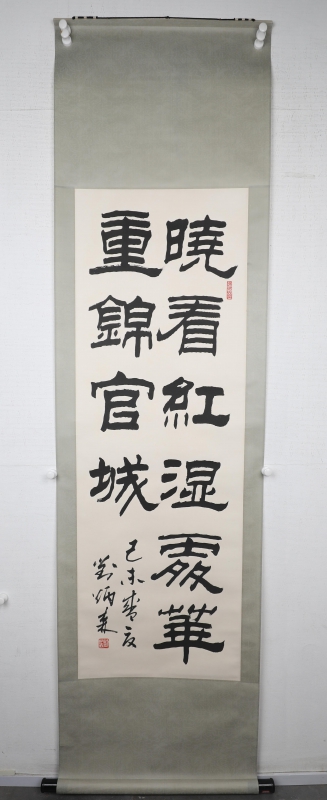 曉看紅湿處華
重錦官城
己未春夜
劉炳森